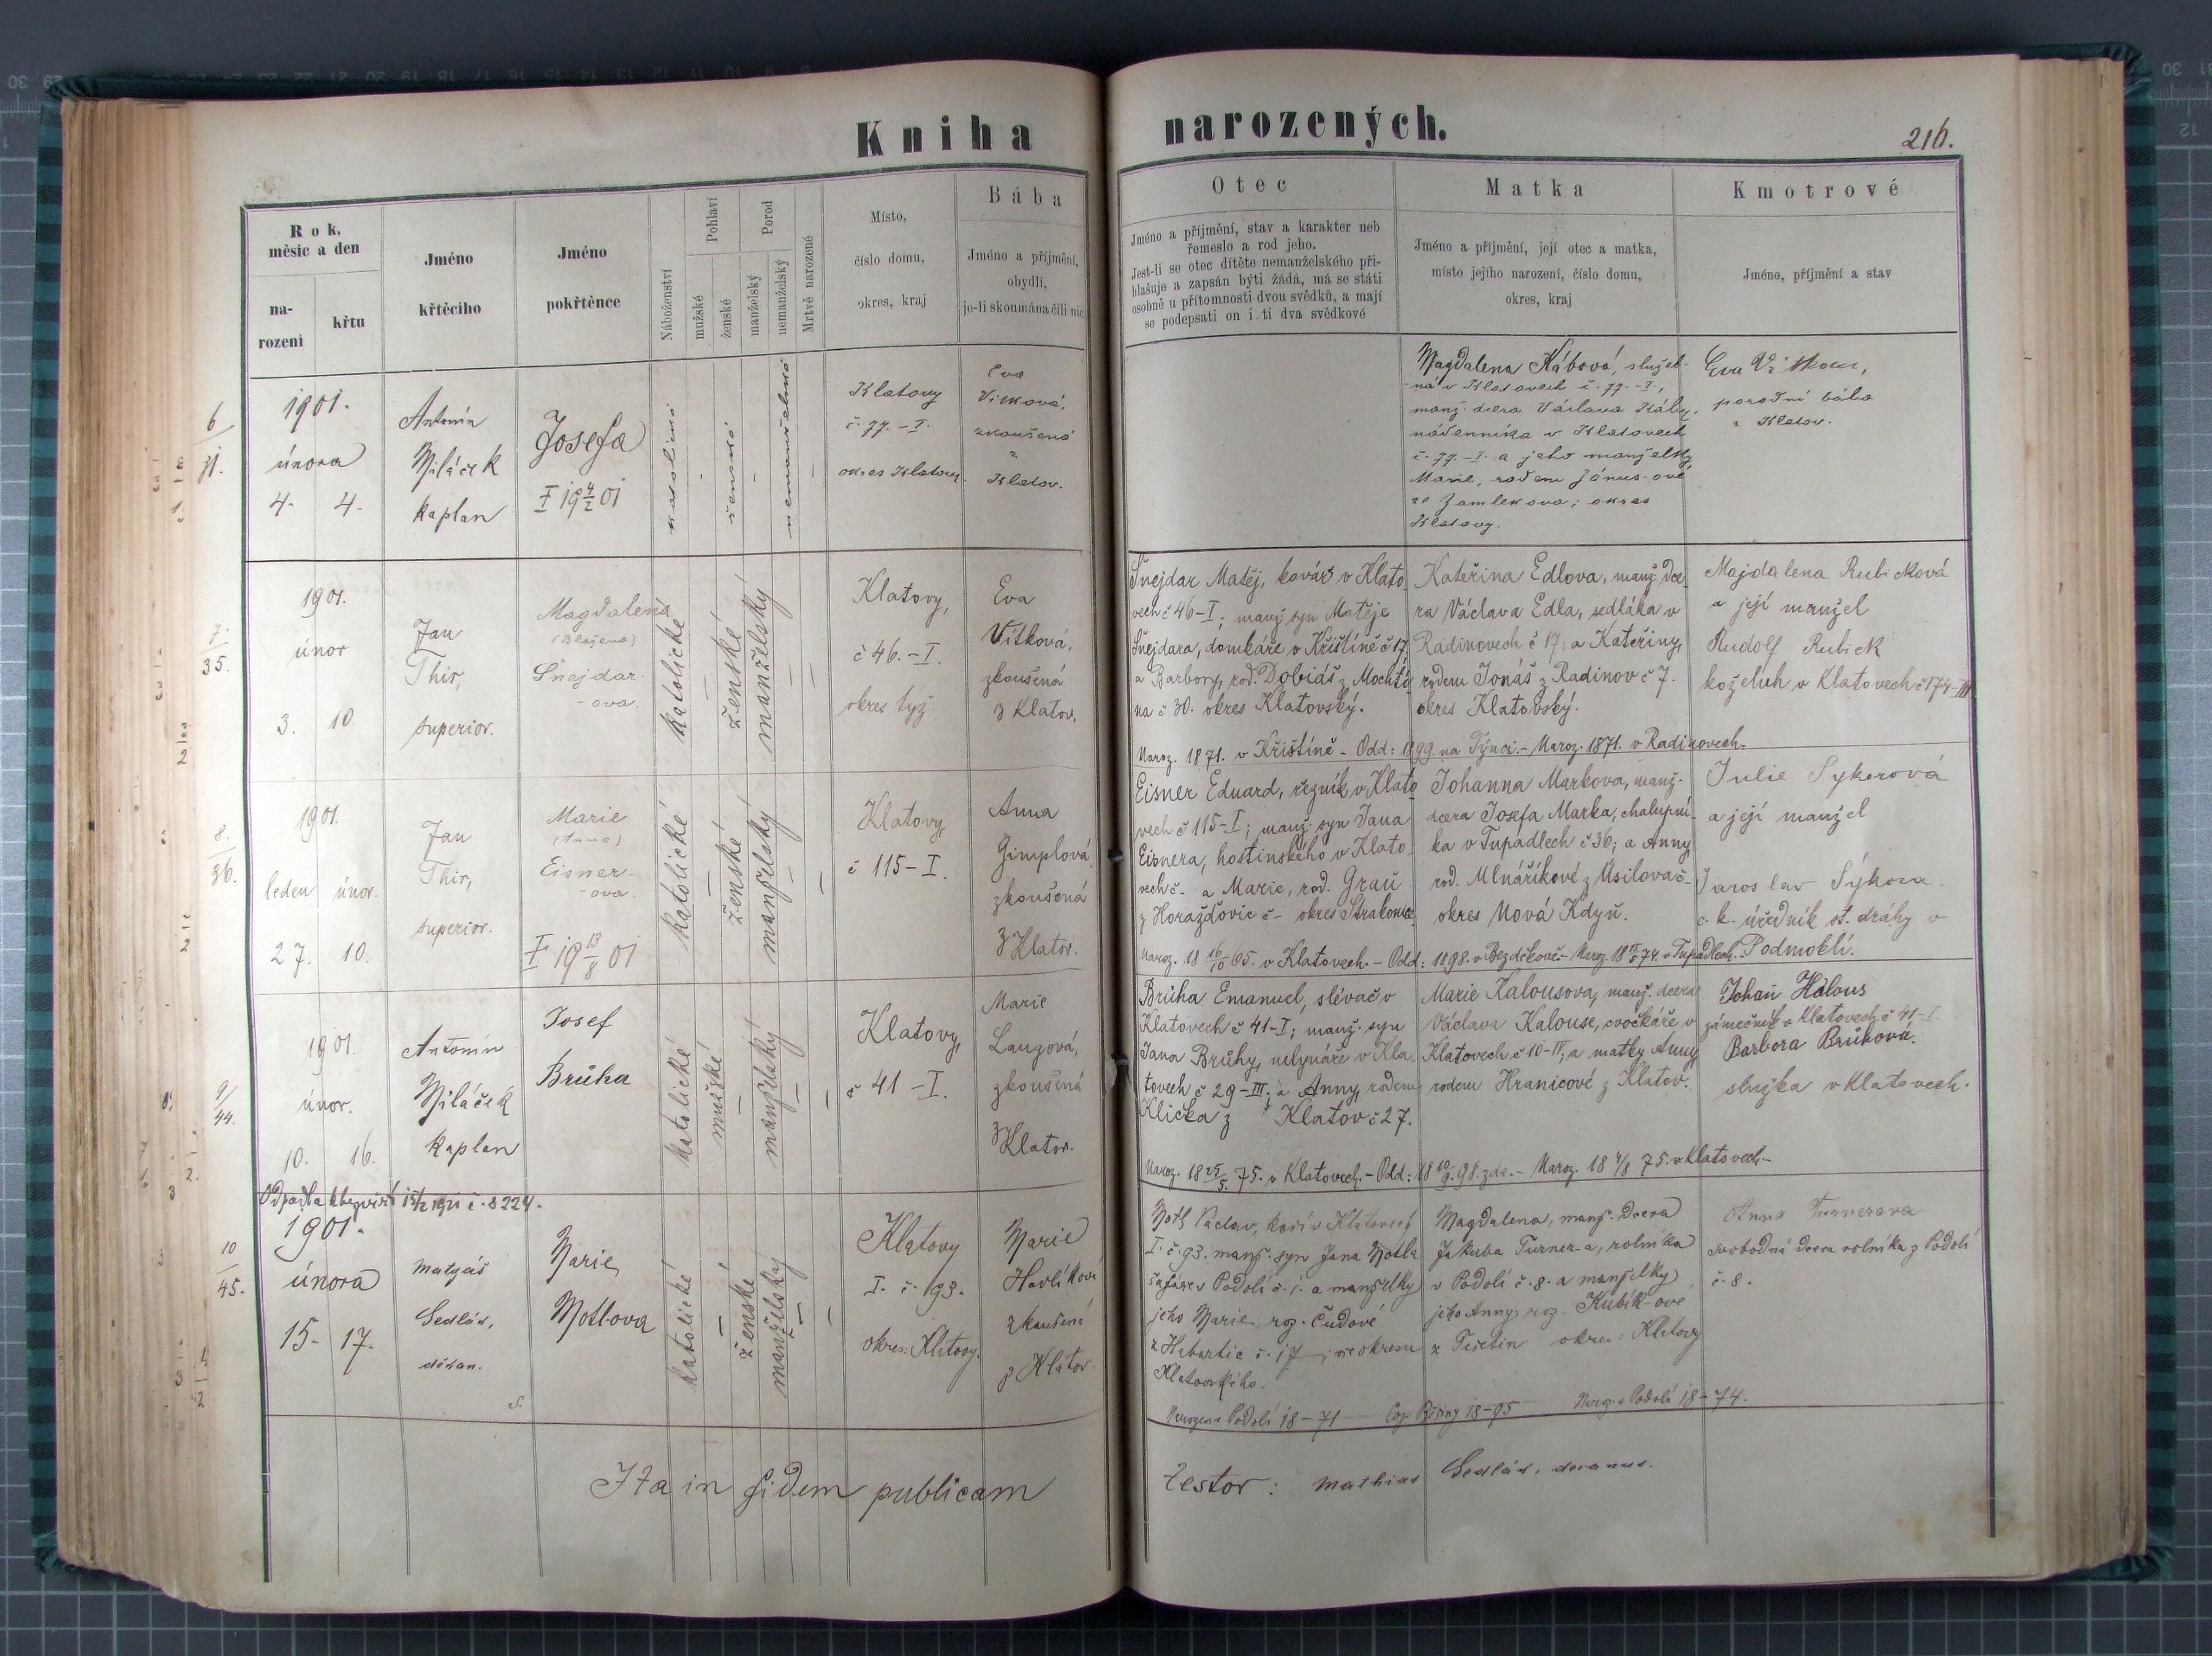 Kniha narozených.
216.
Rok, měsíc a den
na-
rozeni
křtu
Jméno
křtěcího
Jméno
pokřtěnce
Náboženství
Pohlaví
mužské
ženské
Porod
manželský
nemanželský
Mrtvě narozené
Místo,
číslo domu,
okres, kraj
Bába
Jméno a příjmění,
obydlí,
je-li skoumána čili nic
Otec
Jméno a příjmění, stav a karakter neb
řemeslo a rod jeho.
Jest-li se otec dítěte nemanželského při-
hlašuje a zapsán býti žádá, má se státi
osobně u přítomnosti dvou svědků, a mají
se podepsati on i ti dva svědkové
Matka
Jméno a příjmění, její otec a matka,
místo jejího narození, číslo domu,
okres, kraj
Kmotrové
Jméno, příjmění a stav
6
31.
1901.
února
4. 4.
Antonín
Miláček
kaplan
Josefa
I 19 4/2 01
katolické
-
ženské
-
nemanželské
-
Klatovy
č. 77.-I.
okres Klatovy.
Eva
Vítková,
zkoušená
z
Klatov.
Magdalena Kábová, služeb-
ná v Klatovech č. 77.-I.,
manž. dcera Václava Káby,
nádenníka v Klatovech
č. 77.-I. a jeho manželky
Marie, rodem Jánus-ové
ze Zamlekova; okres
Klatovy.
Eva Vítková,
porodní bába
z Klatov.
7.
35.
1901.
únor
3. 10.
Jan
Thir,
superior.
Magdalena
(Blažena)
Šnejdar-
-ova.
katolické
-
ženské
manželský
-
-
Klatovy,
č 46.-I.
okres týž
Eva
Vítková,
zkoušená
z Klatov.
Šnejdar Matěj, kovář v Klato-
vech č 46-I; manž. syn Matěje
Šnejdara, domkáře v Křištíně č 17,
a Barbory, rod. Dobiáš z Mochtí-
na č 30. okres Klatovský.
Kateřina Edlova, manž. dce-
ra Václava Edla, sedláka v
Radinovech č 17; a Kateřiny,
rodem Jonáš z Radinov č 7.
okres Klatovský.
Majdalena Rubicková
a její manžel
Rudolf Rubick
koželuh v Klatovech č 174-III
Naroz. 1871. v Křištíně - Odd: 1899 na Týnci.- Naroz. 1871. v Radinovech.
8.
36.
1901.
leden únor.
27. 10.
Jan
Thir,
superior.
Marie
(Anna)
Eisner-
-ova.
I 19 13/8 01
katolické
-
ženské
manželský
-
-
Klatovy,
č 115-I.
Anna
Gimplová,
zkoušená
z Klatov.
Eisner Eduard, řezník v Klato-
vech č 115-I; manž. syn Jana
Eisnera, hostinského v Klato-
vech č- a Marie, rod. Grau
z Horažďovic č- okres Strakonice
Johanna Markova, manž.
dcera Josefa Marka, chalupní-
ka v Tupadlech č 36; a Anny
rod. Mlnáříkové z Úsilova č-
okres Nová Kdyň.
Julie Sykorová
a její manžel
Jaroslav Sýkora
c. k. úředník st. dráhy v
Podmoklí.
Naroz. 18 16/10 65. v Klatovech. - Odd: 1898. v Bezděkově.- Naroz. 18 15/5 74. v Tupadlech.
9
44.
1901.
únor.
10. 16.
Antonín
Miláček
kaplan
Josef
Brůha
katolické
mužské
-
manželský
-
-
Klatovy,
č 41-I.
Marie
Langová,
zkoušená
z Klatov.
Brůha Emanuel, slévač v
Klatovech č 41-I; manž. syn
Jana Brůhy, mlynáře v Kla-
tovech č 29-III; a Anny, rodem
Klicka z Klatov č 27.
Marie Kalousova, manž. dcera
Václava Kalouse, cvočkáře v
Klatovech č 10-IV, a matky Anny
rodem Hranicové z Klatov.
Johan Halous
zámečník v Klatovech č 41-I.
Barbora Brůhová.
služka v Klatovech.
Naroz. 18 25/5. 75. v Klatovech. - Odd: 18 10/9. 98. zde. - Naroz. 18 4/8 75. v Klatovech.-
10
45.
1901.
února
15. 17.
Matyáš
Sedlák,
děkan.
Marie
Motlova
katolické
-
ženské
manželský
-
-
Klatovy
I. č. 193.
okres: Klatovy.
Marie
Havlíková
zkoušená
z Klatov.
Motl Václav, kočí v Klatovech
I. č. 93. manž. syn Jana Motla
šafáře v Podolí č. 1. a manželky
jeho Marie, roz. Čudové
z Habartic č. 17
Klatovského.
Magdalena, manž. dcera
Jakuba Turner-a, rolníka
v Podolí č. 8. a manželky
jeho Anny, roz. Kubík-ové
okres: Klatovy
Anna Turnerova
svobodná dcera rolníka z Podolí
č. 8.
Narozen v Podolí 18-71 18-95 Naroz. v Podolí 18-74.
Ita in fidem publicam testor: Mathias Sedlák, decanus.